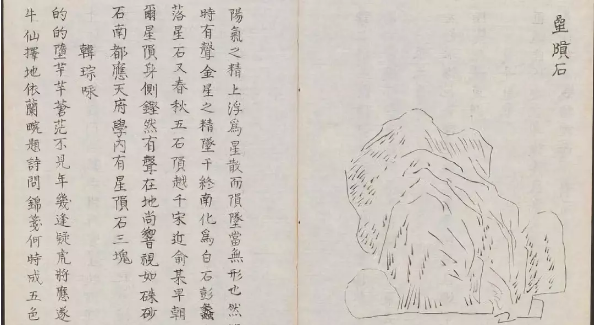 星隕石
陽氣之精上浮爲星散而隕墜當無形也然
時有聲金星之精墜于終南化爲白石彭蠡
落星石又春秋五石隕越于宋近俞某早朝
爾星隕身側鏗然有聲在地尚響視如硃砂
石南都應天府學內有星隕石三塊
韓琮咏
的的墮芊芊蒼茫不見年幾逢疑虎將應逐
牛仙擇地依蘭畹題詩間錦箋何時成五色